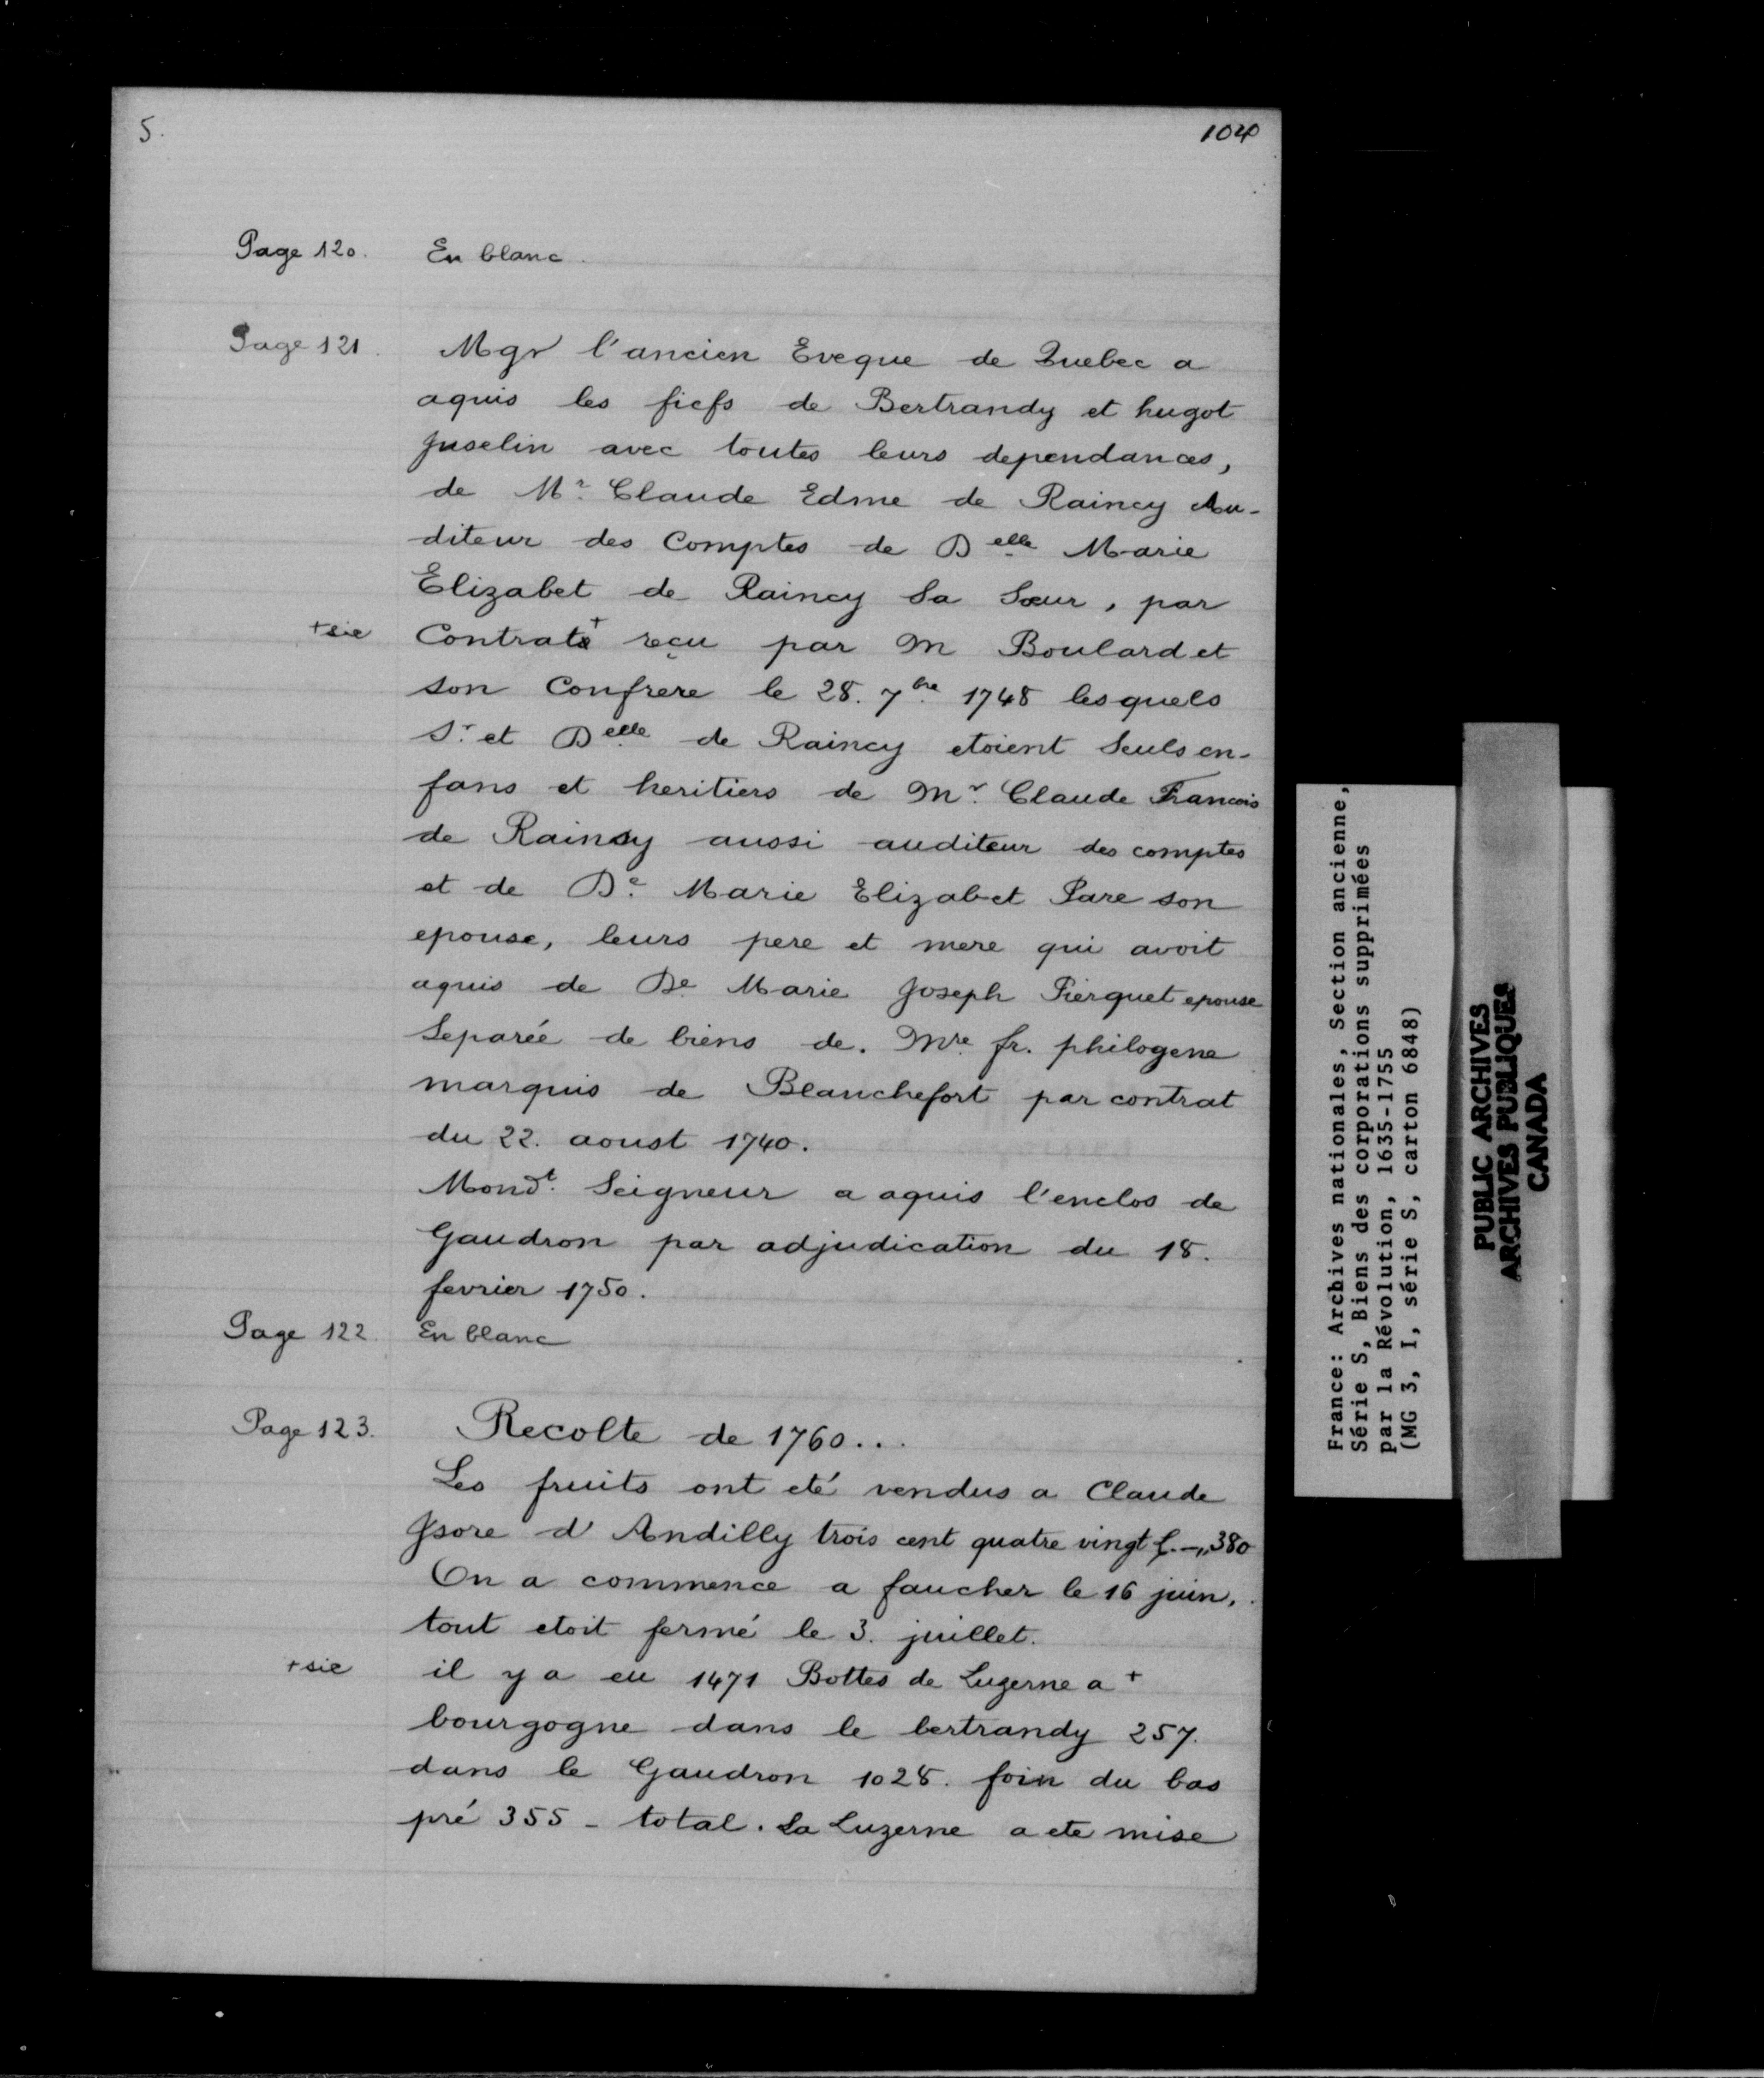 5.
104
Page 120. En blanc.
Page 121. Mgr l'ancien Eveque de Quebec a
aquis les fiefs de Bertrandy et hugot
Juselin avec toutes leurs dependances,
de Mr. Claude Edme de Raincy Au-
diteur des Comptes de Delle Marie
Elizabet de Raincy Sa Sœur, par
+ sic Contrats+ reçu par M Boulard et
son Confrere le 28. 7bre 1748 lesquels
Sr. et Delle de Raincy etoient Seuls en-
fans et heritiers de Mr. Claude Francois
de Raincy aussi auditeur des comptes
et de De. Marie Elizabet Pare son
epouse, leurs pere et mere qui avoit
aquis de De Marie Joseph Pierquet epouse
Separée de biens de. Mre. fr. philogene
marquis de Blanchefort par contrat
du 22. aoust 1740.
Mondt. Seigneur a aquis l'enclos de
Gaudron par adjudication du 18.
fevrier 1750.
Page 122. En blanc
Page 123. Recolte de 1760...
Les fruits ont eté vendus a Claude
Jsore d'Andilly trois cent quatre vingt £.-„380
On a commence a faucher le 16 juin,.
tout etoit fermé le 3. juillet.
+ sic il y a eu 1471 Bottes de Luzerne a +
bourgogne dans le bertrandy 257.
dans le Gaudron 1028. foin du bas
pré 355 - total. La Luzerne a ete mise
France: Archives nationales, Section ancienne,
Série S, Biens des corporations supprimées
par la Révolution, 1635-1755
(MG 3, I, série S, carton 6848)
PUBLIC ARCHIVES
ARCHIVES PUBLIQUES
CANADA